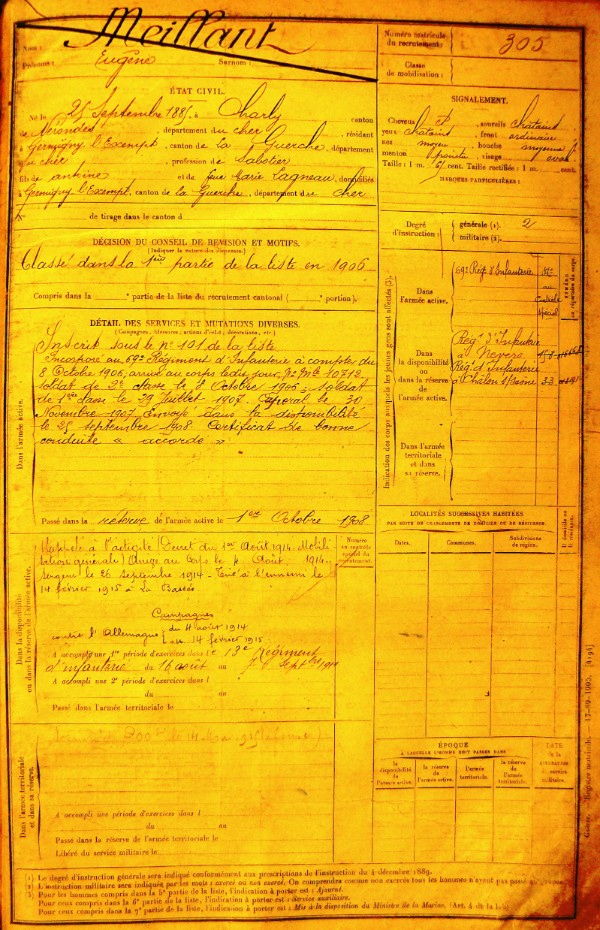 Nom : Meillant
Prénoms : Eugène Surnoms :
Numéro matricule du recrutement : 305
Classe de mobilisation :
ÉTAT CIVIL.
Né le 25 Septembre 1885, à Charly, canton
de Nérondes, département du Cher, résidant
à Germigny l'Exempt, canton de La Guerche, département
du Cher, profession de Sabotier
fils de Antoine et de feue Marie Lagneau, domiciliés
à Germigny l'Exempt, canton de La Guerche, département du Cher
N° de tirage dans le canton d
SIGNALEMENT.
Cheveux et sourcils châtains
yeux châtains, front ordinaire
nez moyen, bouche moyenne
menton, visage ovale
Taille : 1 m. cent. Taille rectifiée : 1 m. cent.
MARQUES PARTICULIÈRES :
Degré d'instruction : générale (1). 2
militaire (2).
DÉCISION DU CONSEIL DE REVISION ET MOTIFS.
(Indiquer la nature des dispenses.)
Classé dans la 1ère partie de la liste en 1906
Compris dans la partie de la liste du recrutement cantonal ( portion).
DÉTAIL DES SERVICES ET MUTATIONS DIVERSES.
(Campagnes, blessures, actions d'éclat, décorations, etc.)
Dans l'armée active.
Inscrit sous le n° 101 de la liste
Incorporé au 69e Régiment d'Infanterie à compter du
8 Octobre 1906, arrivé au corps ledit jour, N° Mle 10712
soldat de 2e classe le 8 Octobre 1906 - soldat
de 1ère classe le 29 Juillet 1907. Caporal le 30
Novembre 1907. Envoyé dans la disponibilité
le 25 septembre 1908 Certificat de bonne
conduite « accordé »
Passé dans la réserve de l'armée active le 1er Octobre 1908
Dans la disponibilité ou dans la réserve de l'armée active.
Rappelé à l'activité (Décret du 1er Août 1914. Mobili-
sation générale) Arrivé au Corps le 4 Août 1914.
sergent le 26 septembre 1914 - Tué à l'ennemi le
14 février 1915 à La Bassée
Campagnes
contre l'Allemagne du 4 août 1914
au 14 février 1915
A accompli une 1re période d'exercices dans le 13e Régiment
d'infanterie du 16 août au Sept bre
A accompli une 2e période d'exercices dans l
du au
Passé dans l'armée territoriale le
Dans l'armée territoriale et dans sa réserve.
A accompli une période d'exercices dans l
du au
Passé dans la réserve de l'armée territoriale le
Libéré du service militaire le
Indication des corps auxquels les jeunes gens sont affectés (3).
Dans l'armée active.
69e Rég. d'Infanterie
Dans la disponibilité ou dans la réserve de l'armée active.
Rég. d'Infanterie
à Nevers
Rég. d'Infanterie
à Chalon s/ Saône
Dans l'armée territoriale et dans sa réserve.
LOCALITÉS SUCCESSIVES HABITÉES
PAR SUITE DE CHANGEMENTS DE DOMICILE OU DE RÉSIDENCE.
Dates. Communes. Subdivisions de région.
ÉPOQUE
À LAQUELLE L'HOMME DOIT PASSER DANS
la disponibilité de l'armée active. la réserve de l'armée active. l'armée territoriale. la réserve de l'armée territoriale.
DATE DE LA LIBÉRATION du service militaire.
(1) Le degré d'instruction générale sera indiqué conformément aux prescriptions de l'instruction du 4 décembre 1889.
(2) L'instruction militaire sera indiquée par les mots : exercé ou non exercé. On comprendra comme non exercés tous les hommes n'ayant pas passé
(3) Pour les hommes compris dans la 5e partie de la liste, l'indication à porter est : Ajourné.
Pour ceux compris dans la 6e partie de la liste, l'indication à porter est : Service auxiliaire.
Pour ceux compris dans la 7e partie de la liste, l'indication à porter est : Mis à la disposition du Ministre de la Marine. (Art. 4 de la loi)